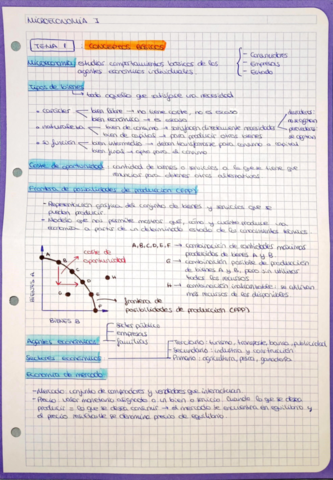 MICROECONOMÍA I
TEMA 1 CONCEPTOS BÁSICOS
Microeconomía: estudia comportamientos básicos de los agentes económicos individuales
- Consumidores
- Empresas
- Estado
Tipos de bienes
todo aquello que satisface una necesidad
• carácter
bien libre → no tiene coste, no es escaso
bien económico → es escaso
• naturaleza
bien de consumo → satisfacen directamente necesidades
bien de capital → para producir otros bienes
duradero
perecedero
• su función
bien intermedio → deben transformarse para consumo o capital
bien final → aptos para el consumo
Coste de oportunidad: cantidad de bienes o servicios a la que se tiene que renunciar para obtener otras alternativas
Frontera de posibilidades de producción (FPP)
- Representación gráfica del conjunto de bienes y servicios que se pueden producir.
- Modelo que nos permite mostrar qué, cómo y cuánto produce una economía a partir de un determinado estado de los conocimientos técnicos
coste de oportunidad
A
B
C
D
E
F
G
H
BIENES A
BIENES B
frontera de posibilidades de producción (FPP)
A, B, C, D, E, F → combinación de cantidades máximas producidas de bienes A y B.
G → combinación posible de producción de bienes A y B, pero sin utilizar todos los recursos
H → combinación inalcanzable: se utilizan más recursos de los disponibles.
Agentes económicos
sector público
empresas
familias
Sectores económicos
Terciario: turismo, transporte, banca, publicidad
Secundario: industria y construcción
Primario: agricultura, pesca, ganadería
Economía de mercado
- Mercado: conjunto de compradores y vendedores que interaccionan
- Precio: valor monetario asignado a un bien o servicio. Cuando lo que se desea producir = lo que se desea consumir → el mercado se encuentra en equilibrio y el precio resultante se denomina precio de equilibrio